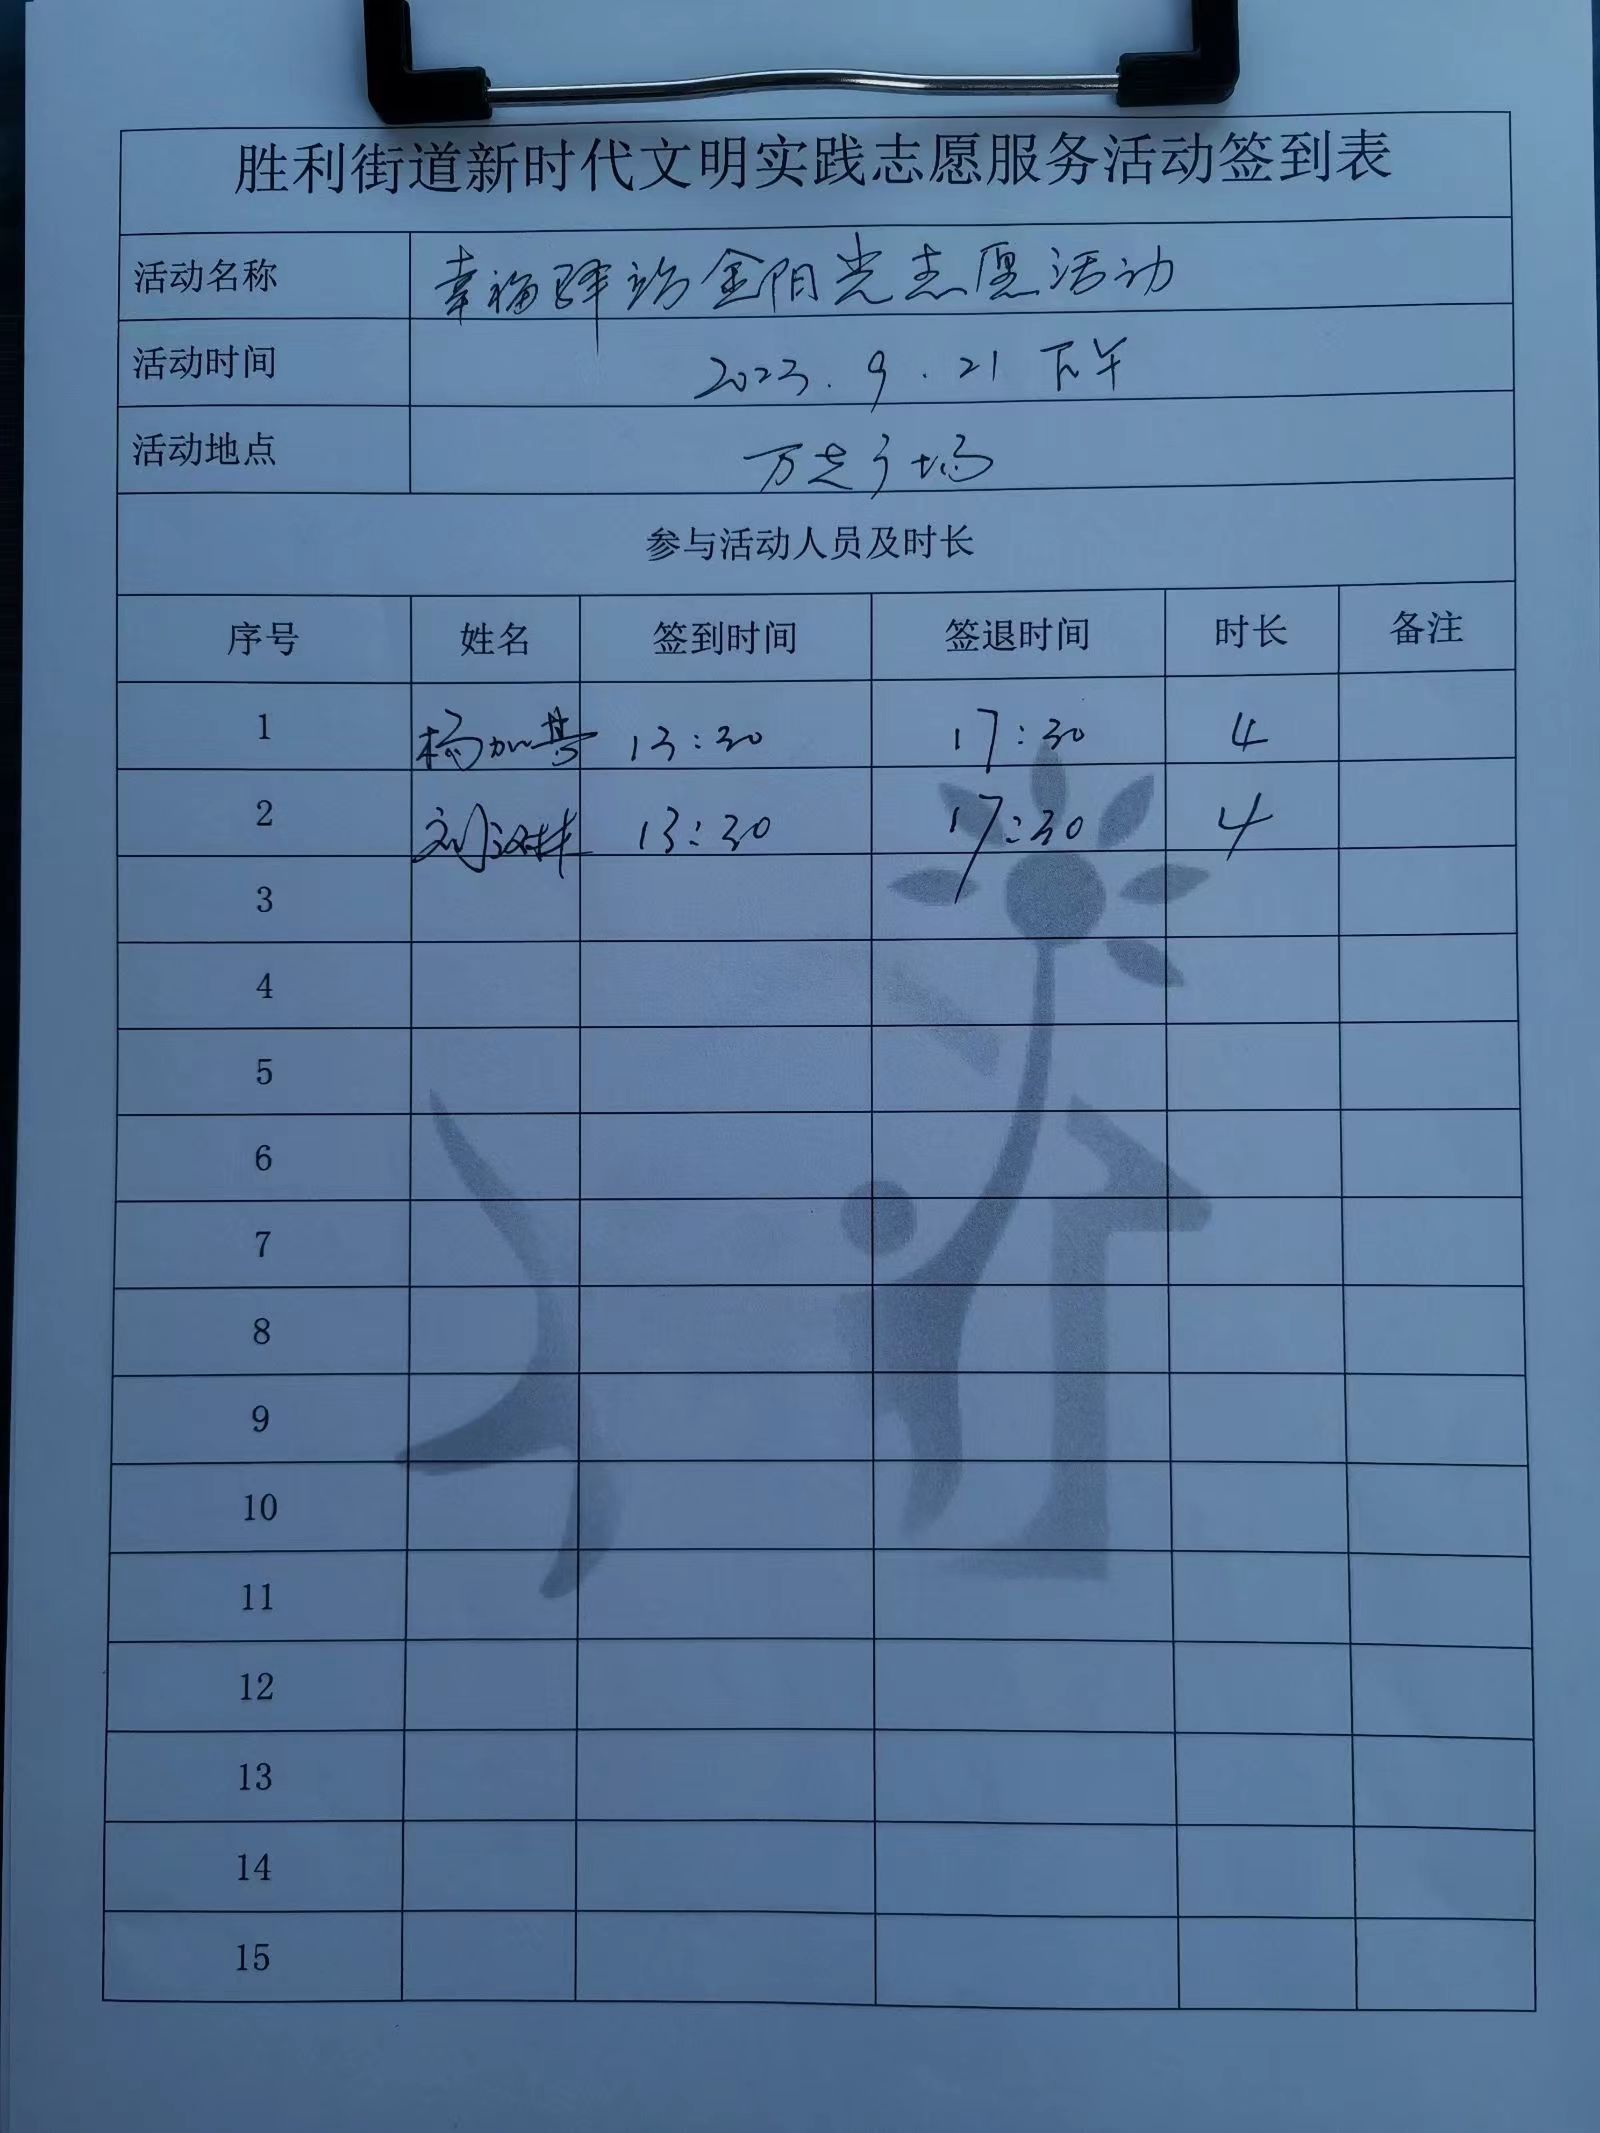 胜利街道新时代文明实践志愿服务活动签到表
活动名称 幸福驿站金阳光志愿活动
活动时间 2023.9.21 下午
活动地点 万达广场
参与活动人员及时长
序号 姓名 签到时间 签退时间 时长 备注
1 杨加 13:30 17:30 4
2 刘汉林 13:30 17:30 4
3
4
5
6
7
8
9
10
11
12
13
14
15